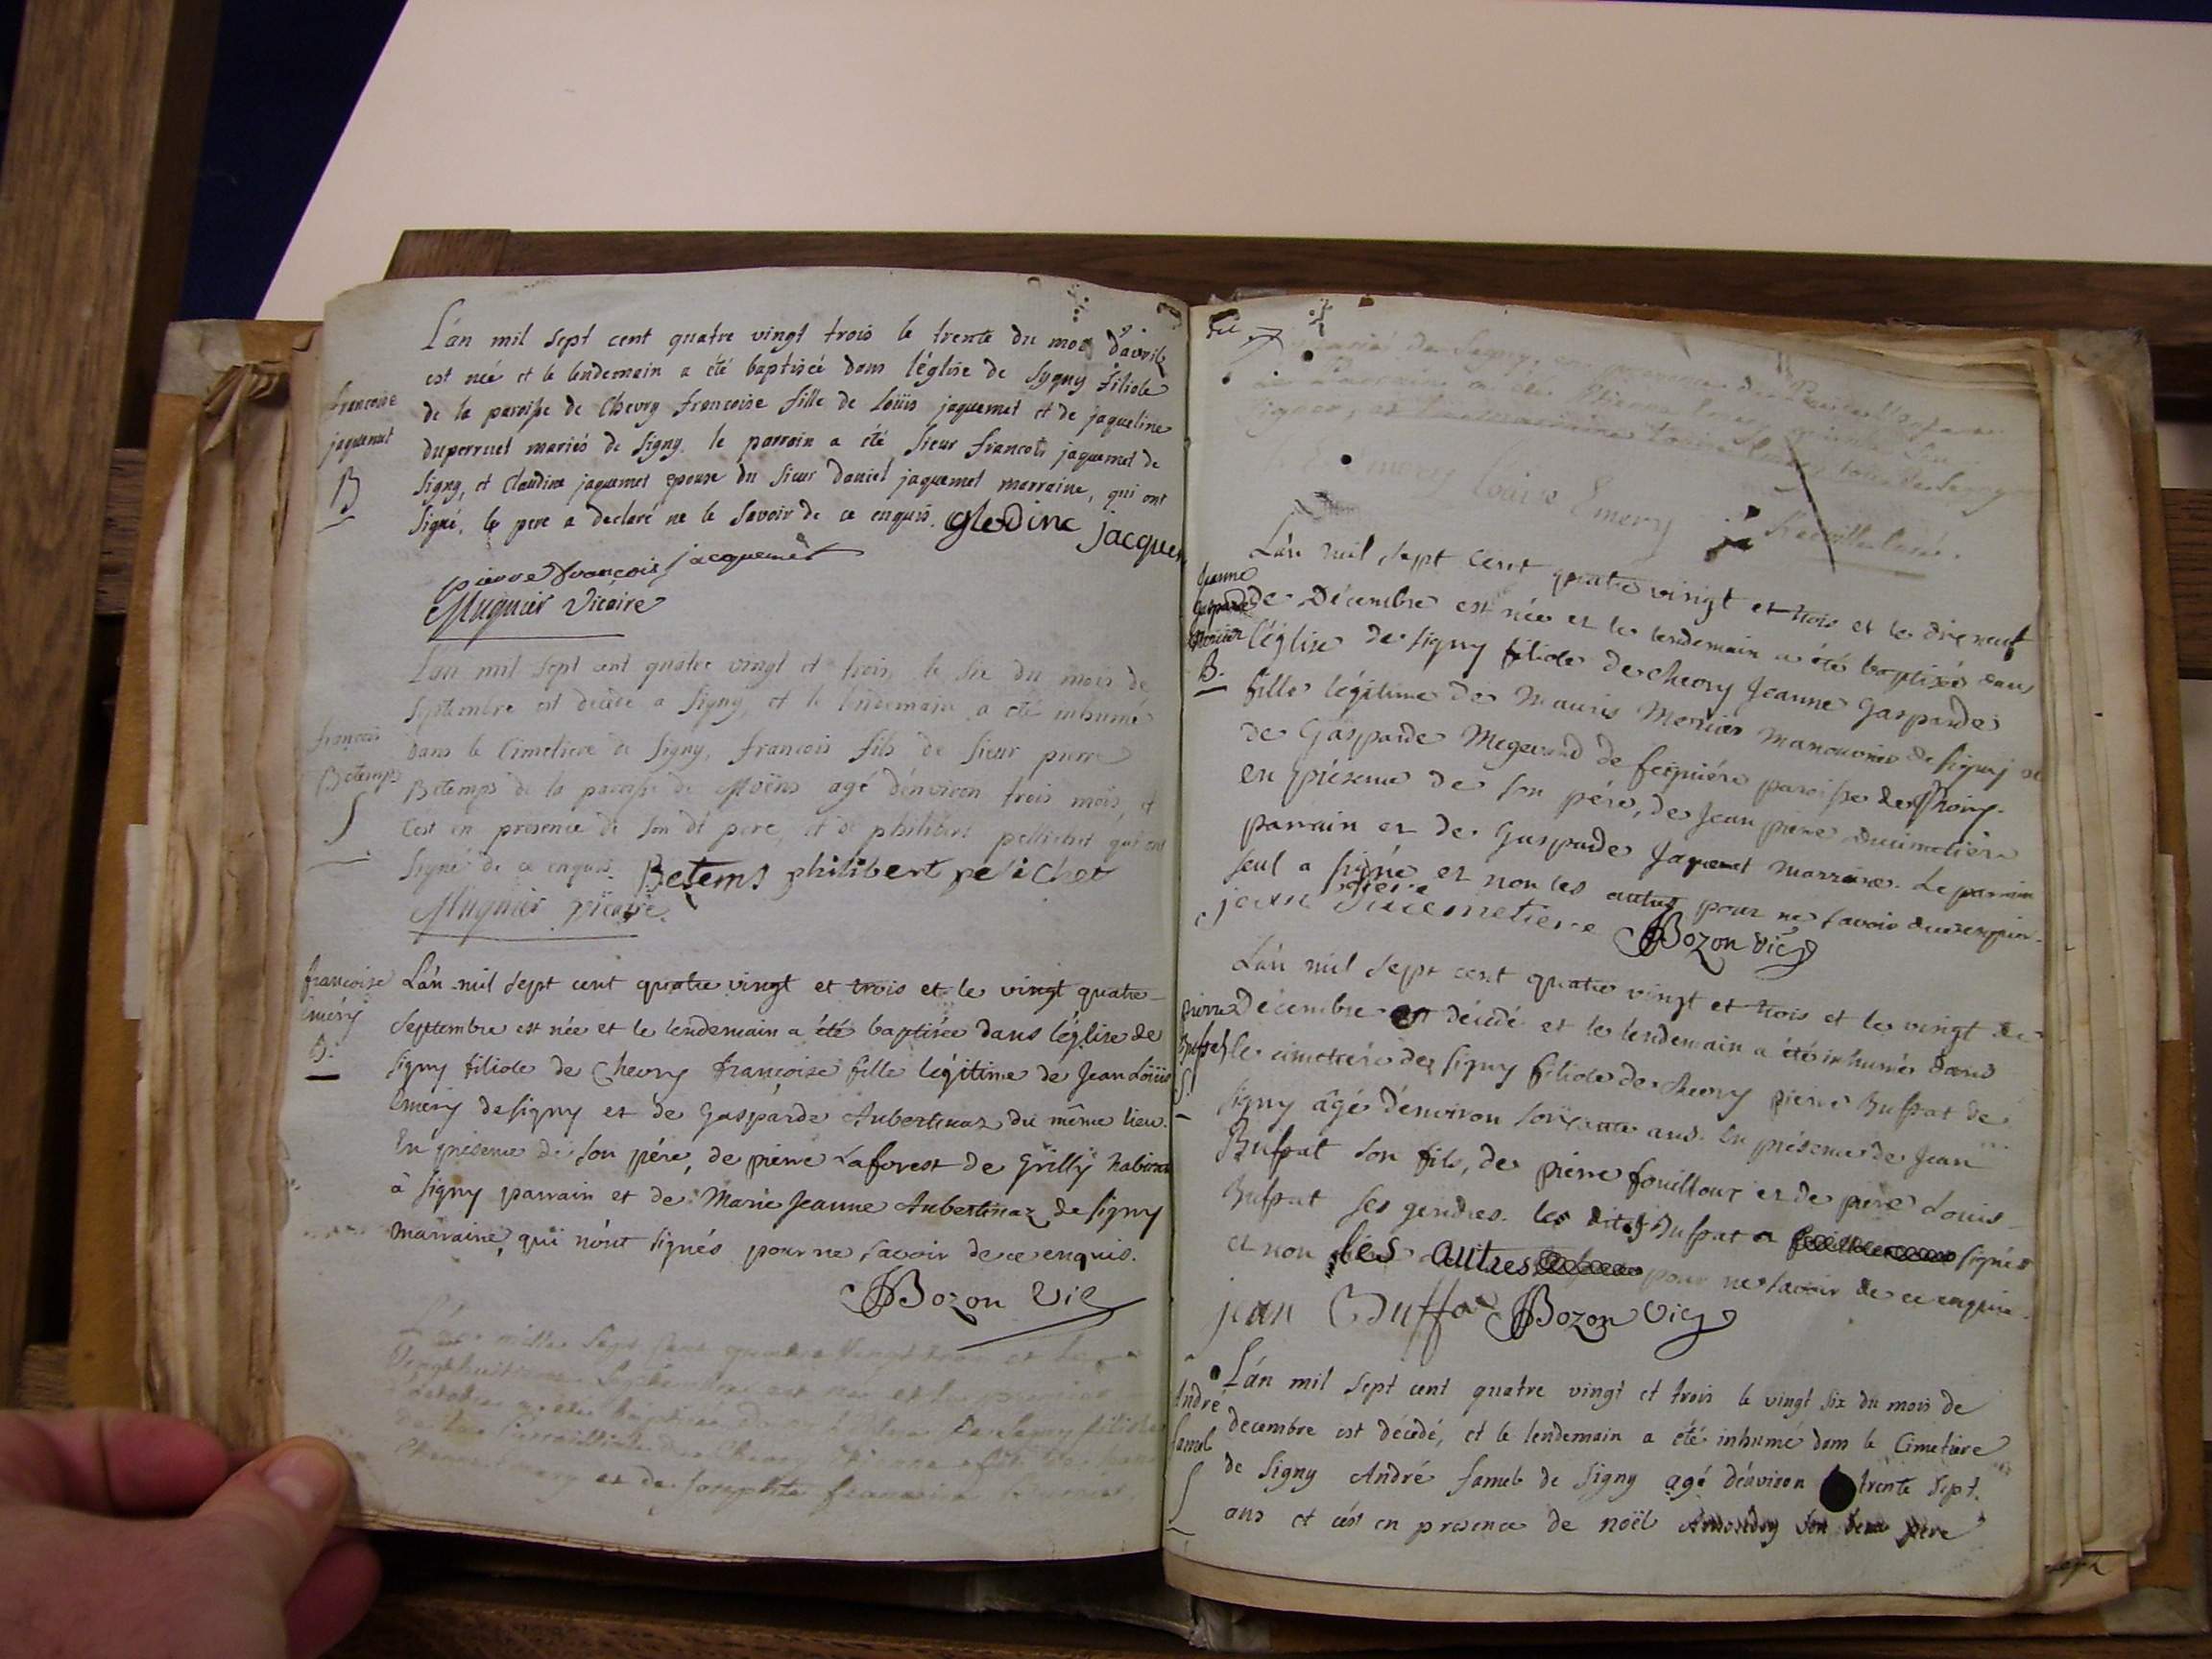 L'an mil sept cent quatre vingt trois le trente du mois d'avril
est née et le lendemain a été baptisée dans l'église de Sygny filiole
francoise
de la paroisse de Chevry francoise fille de Loüis jaquemet et de jaqueline
jaquemet
duperruet mariés de Signy. le parrain a été Sieur francois jaquemet de
B
Signy, et Claudine jaquemet epouse du Sieur Daniel jaquemet marraine, qui ont
Signé, le pere a declaré ne le Savoir de ce enquis. glodine jacquem
pierre francois jacquemet
Mugnier Vicaire
L'an mil Sept cent quatre vingt et trois le six du mois de
Septembre est decédé a Signy, et le lendemain a été inhumé
francois
dans le Cimetiere de Signy, francois fils de Sieur pierre
Betemps
Betemps de la paroisse de Moëns agé d'énviron trois mois, et
S
c'est en presence de Son dt pere, et de philibert pellichet qui ont
Signé de ce enquis. Betems philibert pelichet
Mugnier vicaire
francoise
L'an mil sept cent quatre vingt et trois et le vingt quatre
Emery
Septembre est née et le lendemain a été baptisée dans l'église de
B.
Signy filiole de Chevry françoise fille légitime de Jean Loüis
Emery de Signy et de Gasparde Aubertinaz du même lieu.
En présence de son pére, de pierre Laforest de Grilly habitant
à Signy parrain et de Marie Jeanne Aubertinaz de Signy
marraine, qui n'ont signés pour ne savoir de ce enquis.
Bozon Vic
L'an mille Sept Cent quatre Vingt trois et le
Vingthuitieme Septembre est né et le premier
d'octobre a été baptisé dans l'église de Signy filiole
de Chevry Etienne fils de
Emery et de françoise
marié de Segny, en presence de
Le Parrain a été Etienne Emery
signer, et la marraine Loüise Emery tous de Segny
Emery Louise Emery
L'an mil sept cent quatre vingt et trois et le dix neuf
Jeanne
de Décembre est née et le lendemain a été baptisée dans
Gasparde
Mercier
l'église de Signy filiole de Chevry Jeanne Gasparde
B.
fille légitime de Mauris Mercier manouvrier de Signy et
de Gasparde Megevand de feigniére paroisse de Thoiry.
en présence de son pére, de Jean pierre Ducimetière
parrain et de Gasparde Jaquemet marraine. Le parrain
seul a signé et non les autres pour ne savoir de ce enquis.
jean pierre Ducemetiere Bozon Vic
L'an mil sept cent quatre vingt et trois et le vingt de
pierre
Décembre est décédé et le lendemain a été inhumé dans
Buffat
le cimetiére de Signy filiole de Chevry pierre Buffat de
S.
Signy âgé d'énviron soixante ans. En présence de Jean
Buffat son fils, de pierre fouilloux et de pierre Louis
Buffat ses gendres. les dit Buffat a signés
et non les autres pour ne savoir de ce enquis.
jean Buffa Bozon Vic
L'an mil Sept cent quatre vingt et trois le vingt Six du mois de
André
decembre est décédé, et le lendemain a été inhumé dans le Cimetiere
Famel
de Signy André Famel de Signy agé d'énviron trente Sept
S
ans et c'ést en presence de noël Son beau pere